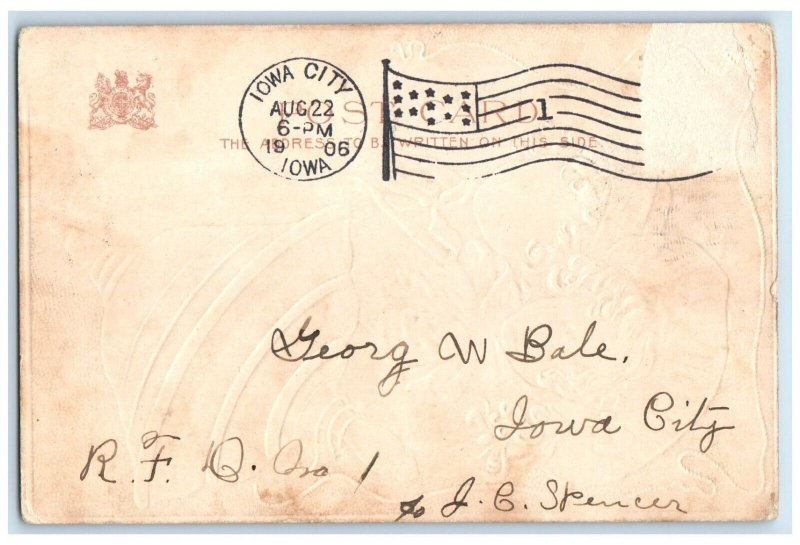 IOWA CITY
AUG 22
6-PM
19 06
IOWA
1
POST CARD
THE ADDRESS TO BE WRITTEN ON THIS SIDE.
Georg W Bale.
Iowa City
R. F. D. No 1
℅ J. C. Spencer